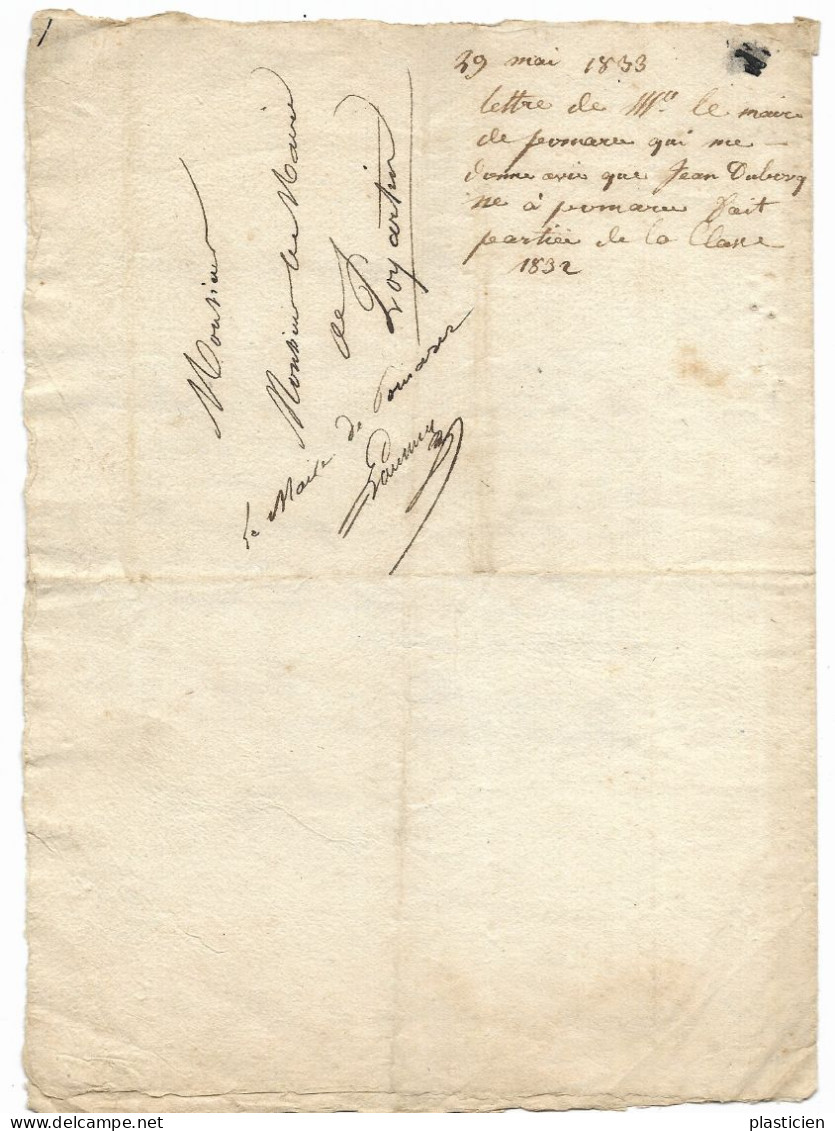 29 mai 1833
lettre de Mr. le maire
de pomarez qui me
donne avis que Jean Dubosq
né à pomarez fait
partiée de la Classe
1832
Monsieur
Monsieur le Maire
de
Poyartin
Le Maire de Pomarez
plasticien